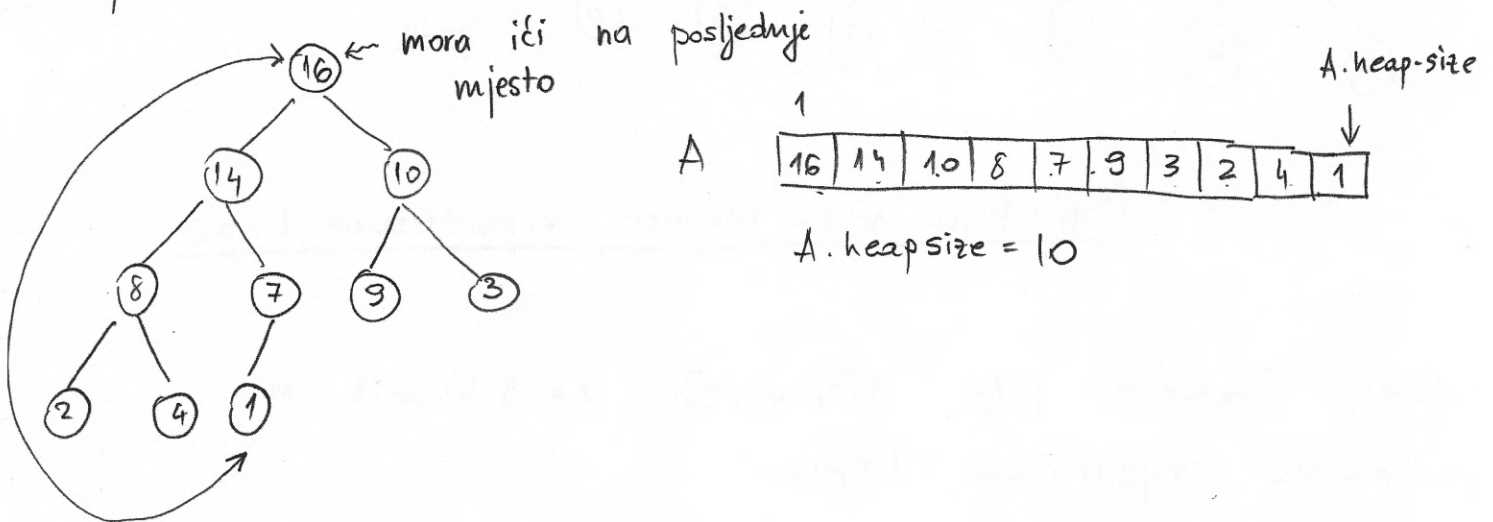 16 mora ići na posljednje
mjesto
14 10
8 7 9 3
2 4 1
A.heap-size
1
A 16 14 10 8 7 9 3 2 4 1
A.heapsize = 10